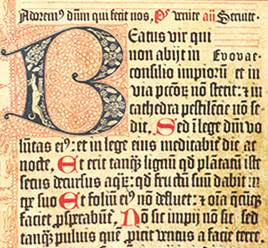 Adorem⁹ dn̄m qui fecit nos, ps̄ Venite añ Seruite.
Beatus vir qui
non abijt in Evovae
consilio impiorū et in
via pcc̄oꝝ nō stetit: ⁊ in
cathedra pestilēcie nō se-
dit. Sed ī lege dn̄i vo-
lūtas ei⁹: et in lege eius meditabit̄ die ac
nocte. Et erit tanqȝ lignū qd̓ plātatū ist
secus decursus aqꝝ: qd̓ fructū suū dabit ī
tꝑe suo Et foliū ei⁹ nō defluet: ⁊ oīa qȩcūqȝ
faciet ꝓsꝑabūt̄. Nō sic impij nō sic sed
tanqȝ puluis quē ꝓicit ventus a facie terre.